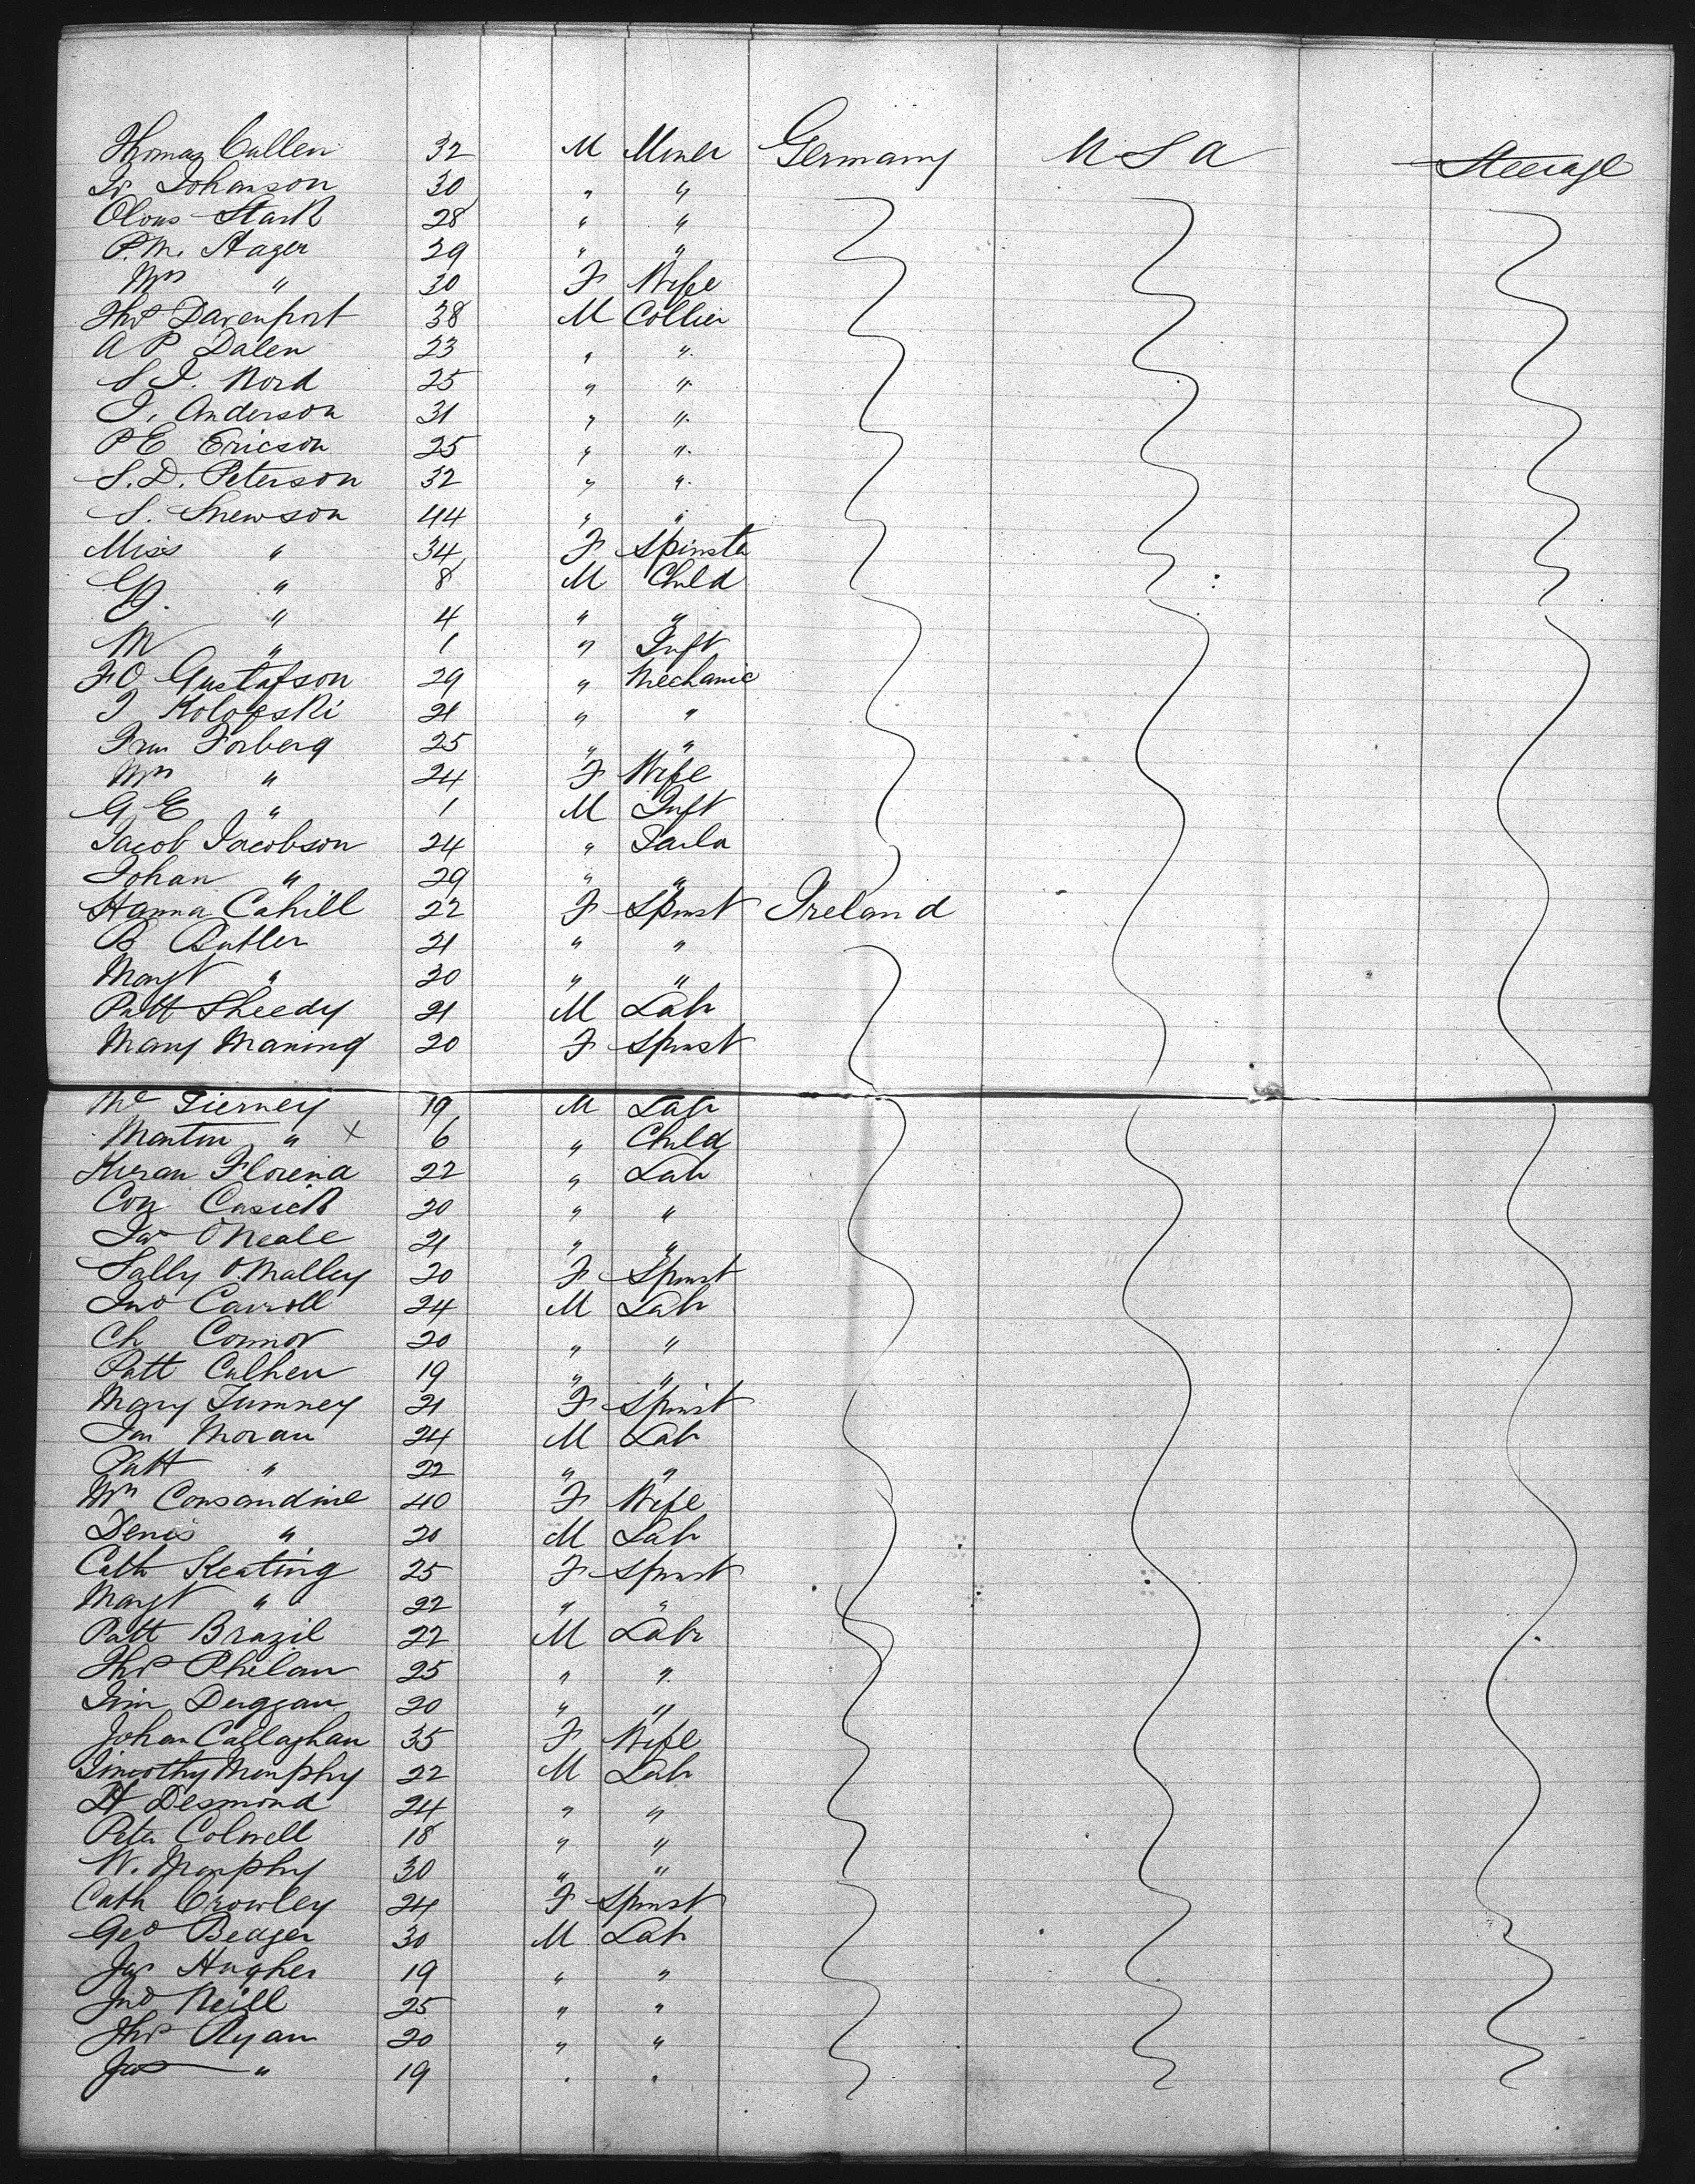 Thomas Cullen 32 M Miner Germany U S A Steerage
Johanson 30 " "
Olous Stark 28 " "
P.M. Hager 29 " "
Mrs " 30 F Wife
Thos Davenport 38 M Collier
A P Dalen 23 " "
S J. Nord 25 " "
J, Anderson 31 " "
P E Ericson 25 " "
S. D. Peterson 32 " "
S. Snewson 44 " "
Miss " 34 F Spinster
" 8 M Child
" 4 " "
M " 1 " Inft
F O Gustafson 29 " Mechanic
J Kolofski 21 " "
Forberg 25 " "
Mrs " 24 F Wife
G E " 1 M Inft
Jacob Jacobson 24 "
Johan " 29 " "
Hanna Cahill 22 F Spinst Ireland
B Butler 21 " "
Margt " 30 " "
Patt Sheedy 21 M Lab
Mary Maning 20 F Spinst
Mc Tierney 19 M Lab
Martin " x 6 " Child
Florena 22 " Lab
Cusick 20 " "
Jas O'Neale 21 " "
Sally O'Malley 20 F Spinst
Jno Carroll 24 M Lab
Ch Connor 20 " "
Patt Culhen 19 " "
Mary Tumney 21 F Spinst
Jas Moran 24 M Lab
Patt " 22 " "
Mrs Consandine 40 F Wife
Denis " 20 M Lab
Cath Keating 25 F Spinst
Margt " 22 " "
Patt Brazil 22 M Labr
Thos Phelan 25 " "
Tim Duggan 20 " "
Johan Callaghan 35 F Wife
Timothy Murphy 22 M Lab
Desmond 24 " "
Peter Colwell 18 " "
W. Murphy 30 " "
Cath Crowley 24 F Spinst
Geo Bedger 30 M Lab
Jas Hughes 19 " "
Jno Neill 25 " "
Thos Ryan 20 " "
Jas " 19 " "